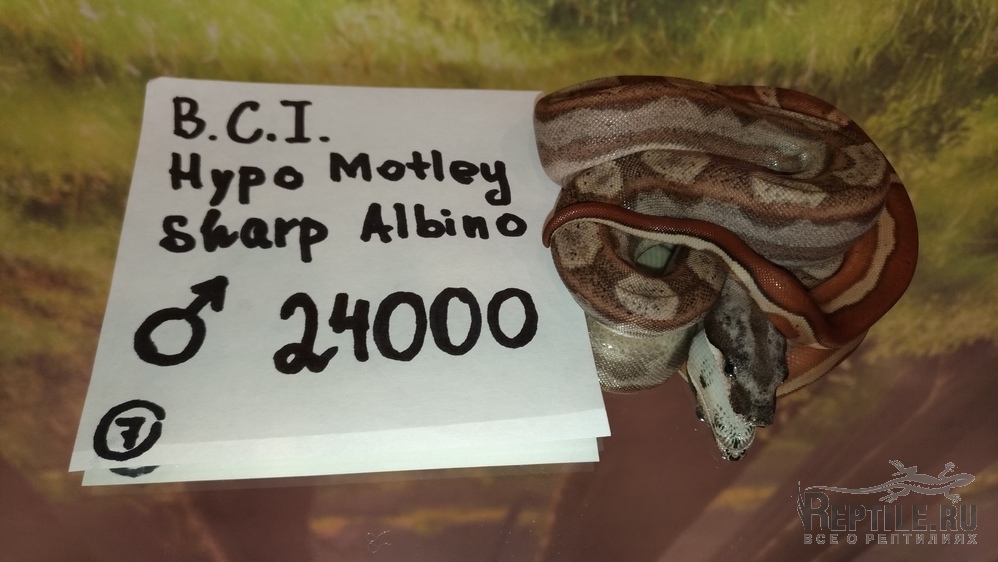 B.C.I.
Hypo Motley
sharp Albino
♂ 24000
7
REPTILE.RU
ВСЕ О РЕПТИЛИЯХ